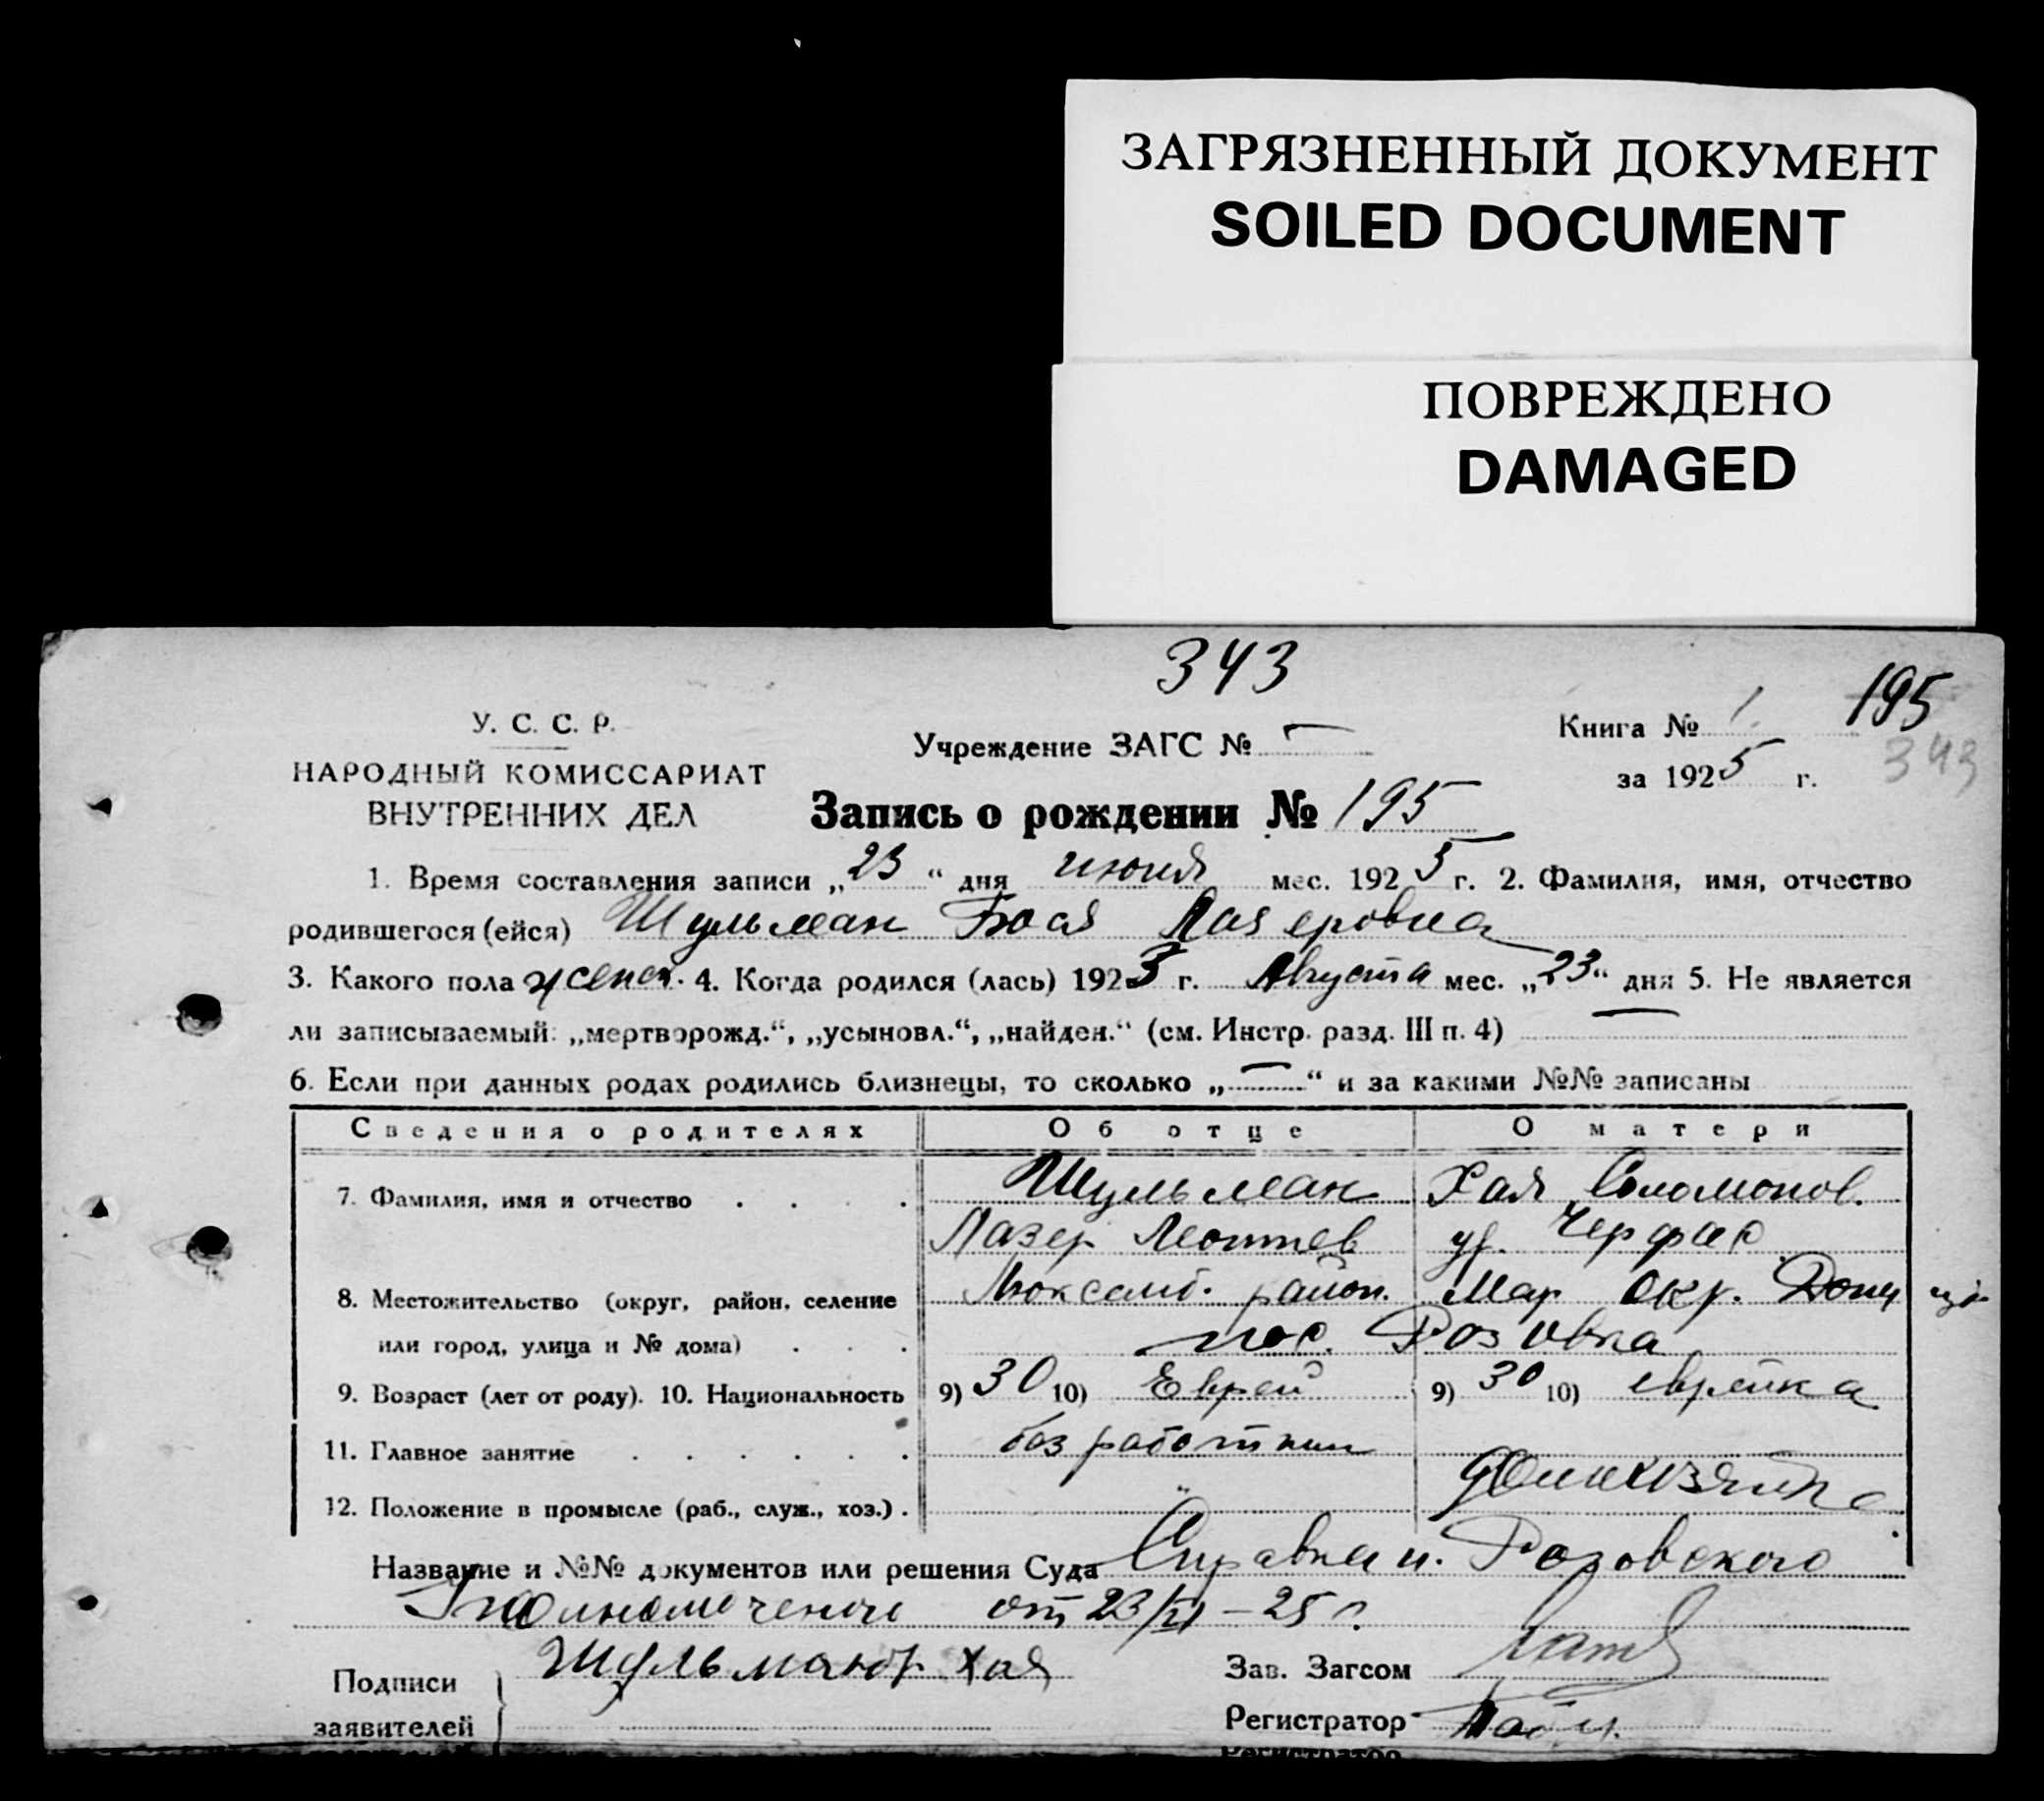 ЗАГРЯЗНЕННЫЙ ДОКУМЕНТ
SOILED DOCUMENT
ПОВРЕЖДЕНО
DAMAGED
343
У. С. С. Р.
НАРОДНЫЙ КОМИССАРИАТ
ВНУТРЕННИХ ДЕЛ
Учреждение ЗАГС № —
Книга № 1. 195
за 1925 г. 343
Запись о рождении № 195
1. Время составления записи „23“ дня июня мес. 1925 г. 2. Фамилия, имя, отчество
родившегося (ейся) Шульман Бася Лазеровна
3. Какого пола женск. 4. Когда родился (лась) 1923 г. Августа мес. „23“ дня 5. Не является
ли записываемый: „мертворожд.“, „усыновл.“, „найден.“ (см. Инстр. разд. III п. 4) —
6. Если при данных родах родились близнецы, то сколько „—“ и за какими №№ записаны
Сведения о родителях Об отце О матери
7. Фамилия, имя и отчество Шульман Хая Соломонов.
Лазер ур. Черфас
8. Местожительство (округ, район, селение Люксемб. район. Мар Окр. Донец
или город, улица и № дома) пос. Розовка
9. Возраст (лет от роду). 10. Национальность 9) 30 10) Еврей 9) 30 10) еврейка
11. Главное занятие без
12. Положение в промысле (раб., служ., хоз.) . " домохозяйка
Название и №№ документов или решения Суда Справка н. Розовского
от 23/VI – 25 г.
Подписи Шульман Хая
заявителей
Зав. Загсом
Регистратор
Регистратор